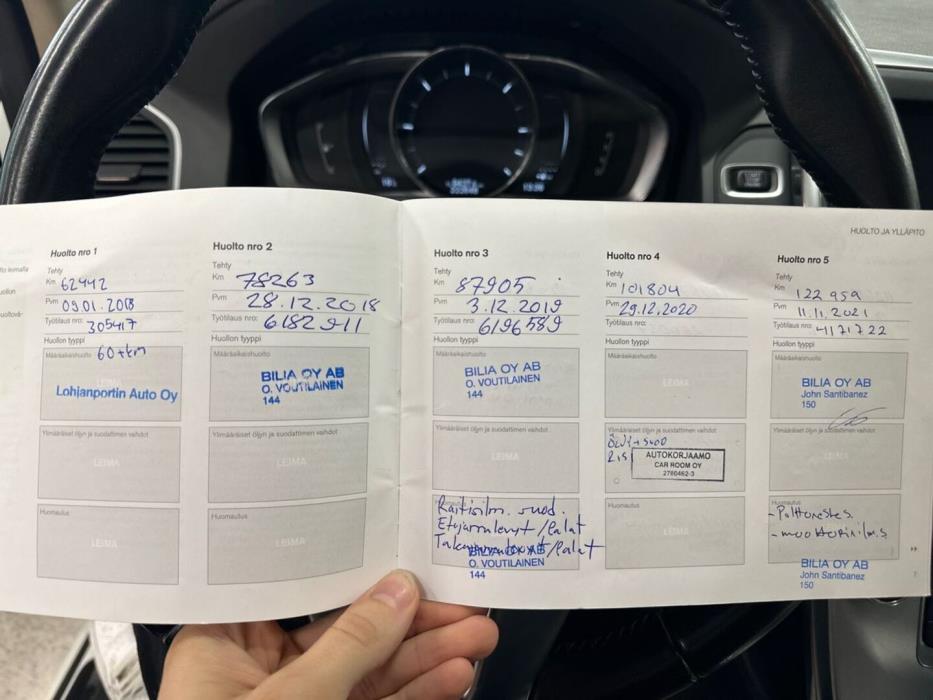 HUOLTO JA YLLÄPITO
Huolto nro 1
Tehty
Km 62442
Pvm 09.01.2018
Työtilaus nro: 305417
Huollon tyyppi
60tkm
Määräaikaishuolto
LEIMA
Lohjanportin Auto Oy
Ylimääräiset öljyn ja suodattimen vaihdot
LEIMA
Huomautus
LEIMA
Huolto nro 2
Tehty
Km 78263
Pvm 28.12.2018
Työtilaus nro: 6182911
Huollon tyyppi
Määräaikaishuolto
BILIA OY AB
O. VOUTILAINEN
144
Ylimääräiset öljyn ja suodattimen vaihdot
LEIMA
Huomautus
LEIMA
Huolto nro 3
Tehty
Km 87905
Pvm 3.12.2019
Työtilaus nro: 6196589
Huollon tyyppi
Määräaikaishuolto
BILIA OY AB
O. VOUTILAINEN
144
Ylimääräiset öljyn ja suodattimen vaihdot
LEIMA
Raitisilm. suod.
Etujarrulevyt/Palat
Takajarrulevyt/Palat
BILIA OY AB
O. VOUTILAINEN
144
Huolto nro 4
Tehty
Km 101804
Pvm 29.12.2020
Työtilaus nro:
Huollon tyyppi
Määräaikaishuolto
LEIMA
Ylimääräiset öljyn ja suodattimen vaihdot
AUTOKORJAAMO
CAR ROOM OY
2780462-3
Huomautus
LEIMA
Huolto nro 5
Tehty
Km 122 959
Pvm 11.11.2021
Työtilaus nro: 4171722
Huollon tyyppi
Määräaikaishuolto
BILIA OY AB
John Santibanez
150
Ylimääräiset öljyn ja suodattimen vaihdot
LEIMA
Huomautus
- Polttoneste s.
- moottorin ilm.s
BILIA OY AB
John Santibanez
150